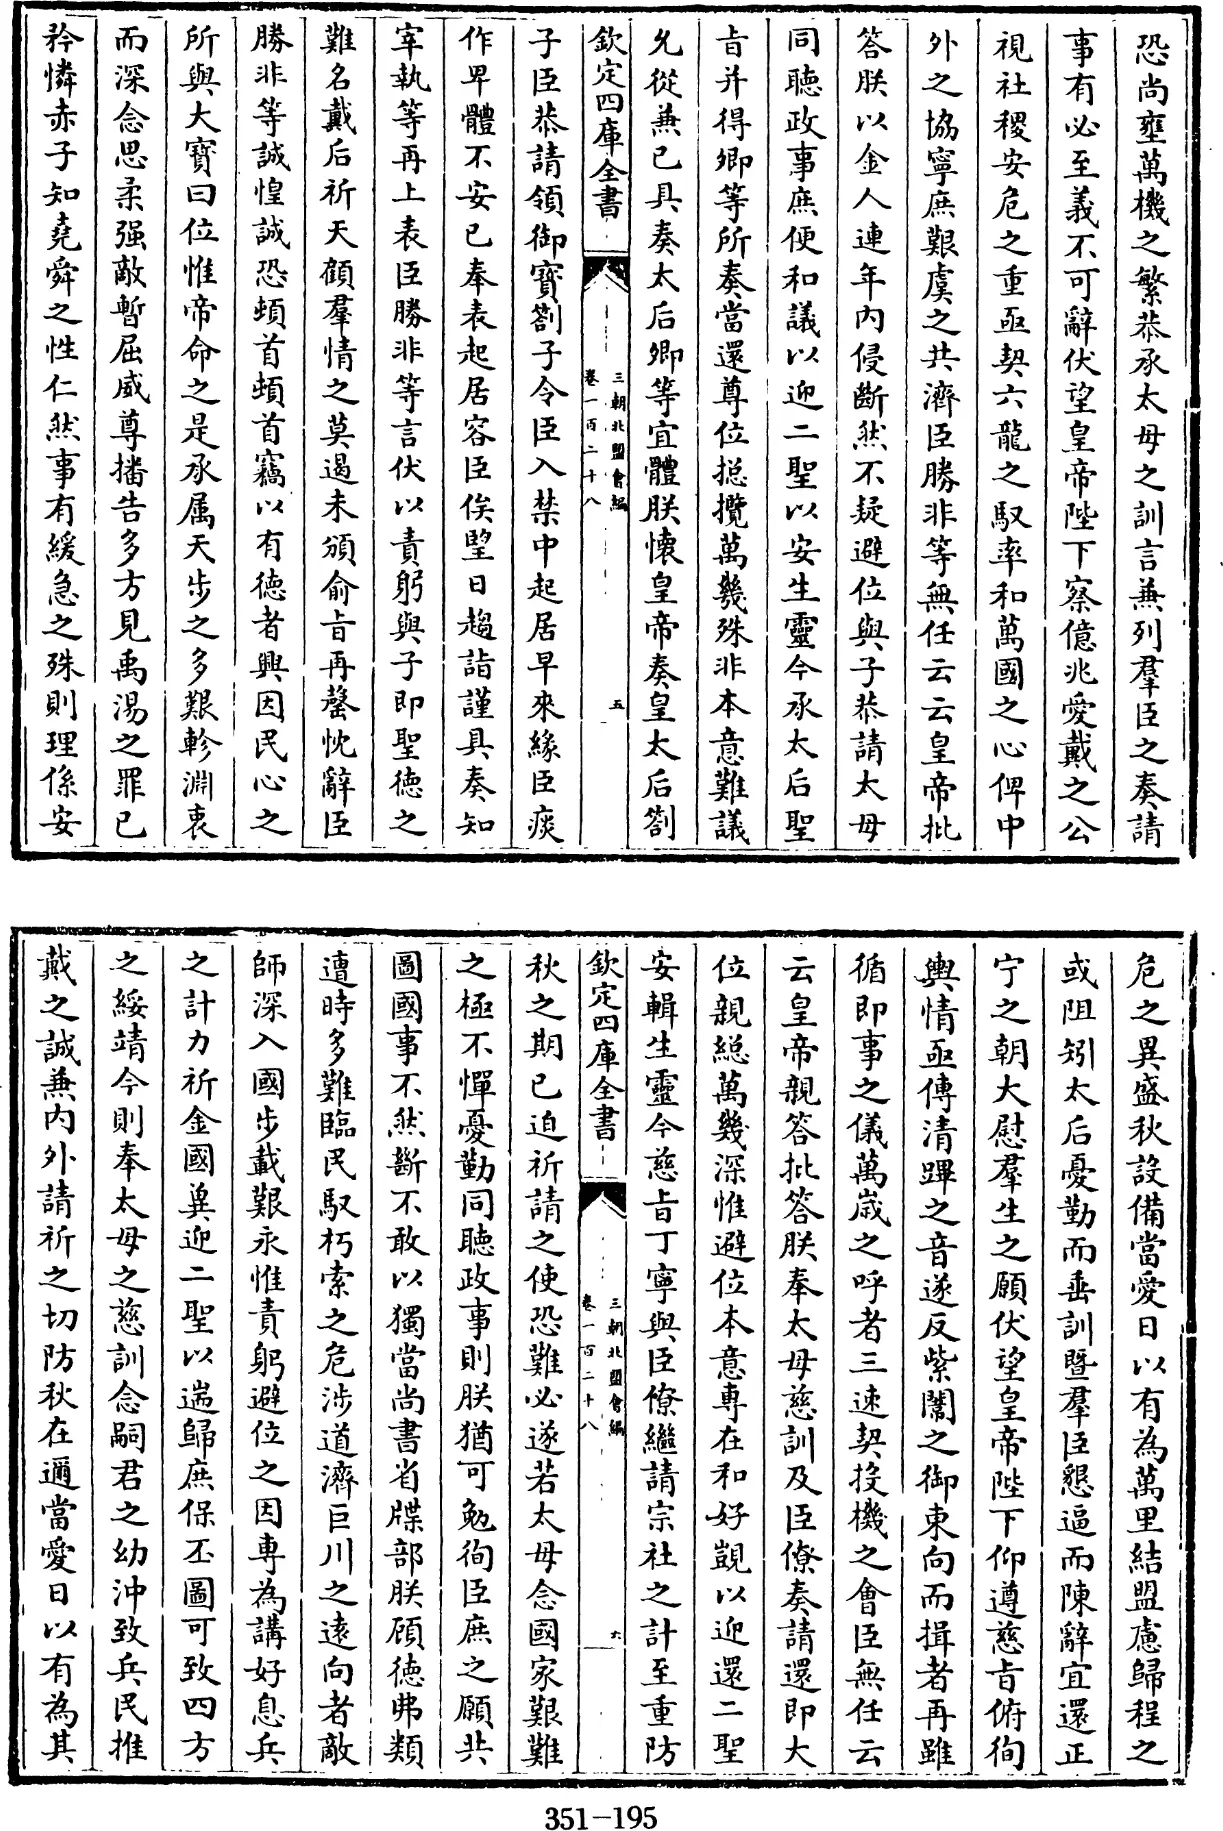 恐尚壅萬機之繁恭承太母之訓言兼列羣臣之奏請
事有必至義不可辭伏望皇帝陛下察億兆愛戴之公
視社稷安危之重亟契六龍之馭率和萬國之心俾中
外之協寧庶艱虞之共濟臣勝非等無任云云皇帝批
答朕以金人連年内侵斷然不疑避位與子恭請太母
同聽政事庶便和議以迎二聖以安生靈今承太后聖
旨并得卿等所奏當還尊位揔攬萬幾殊非本意難議
允從兼已具奏太后卿等宜體朕懷皇帝奏皇太后劄
欽定四庫全書
三朝北盟會編
卷一百二十八
五
子臣恭請領御寳劄子令臣入禁中起居早來緣臣痰
作卑體不安已奉表起居容臣俟朢日趨詣謹具奏知
宰執等再上表臣勝非等言伏以責躬與子即聖徳之
難名戴后祈天顧羣情之莫遏未頒俞旨再罄忱辭臣
勝非等誠惶誠恐頓首頓首竊以有徳者興因民心之
所與大寳曰位惟帝命之是承属天步之多艱軫淵衷
而深念思柔强敵暫屈威尊播告多方見禹湯之罪已
矜憐赤子知堯舜之性仁然事有緩急之殊則理係安
危之異盛秋設備當愛日以有為萬里結盟慮歸程之
或阻矧太后憂勤而垂訓暨羣臣懇逼而陳辭宜還正
宁之朝大慰羣生之願伏望皇帝陛下仰遵慈旨俯徇
輿情亟傳清蹕之音遂反紫闥之御東向而揖者再雖
循即事之儀萬嵗之呼者三速契投機之會臣無任云
云皇帝親答批答朕奉太母慈訓及臣僚奏請還即大
位親緫萬幾深惟避位本意専在和好覬以迎還二聖
安輯生靈今慈旨丁寧與臣僚繼請宗社之計至重防
欽定四庫全書
三朝北盟會編
卷一百二十八
六
秋之期已迫祈請之使恐難必遂若太母念國家艱難
之極不憚憂勤同聽政事則朕猶可勉徇臣庶之願共
圖國事不然斷不敢以獨當尚書省牒部朕顧徳弗類
遭時多難臨民馭朽索之危涉道濟巨川之逺向者敵
師深入國步載艱永惟責躬避位之因専為講好息兵
之計力祈金國兾迎二聖以遄歸庶保丕圖可致四方
之綏靖今則奉太母之慈訓念嗣君之幼沖致兵民推
戴之誠兼内外請祈之切防秋在邇當愛日以有為其
351-195